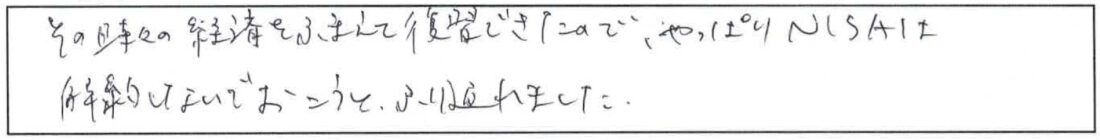 その時々の経済をふまえて復習できたので、やっぱりNISAは
解約しないでおこうと、ふり返れました。